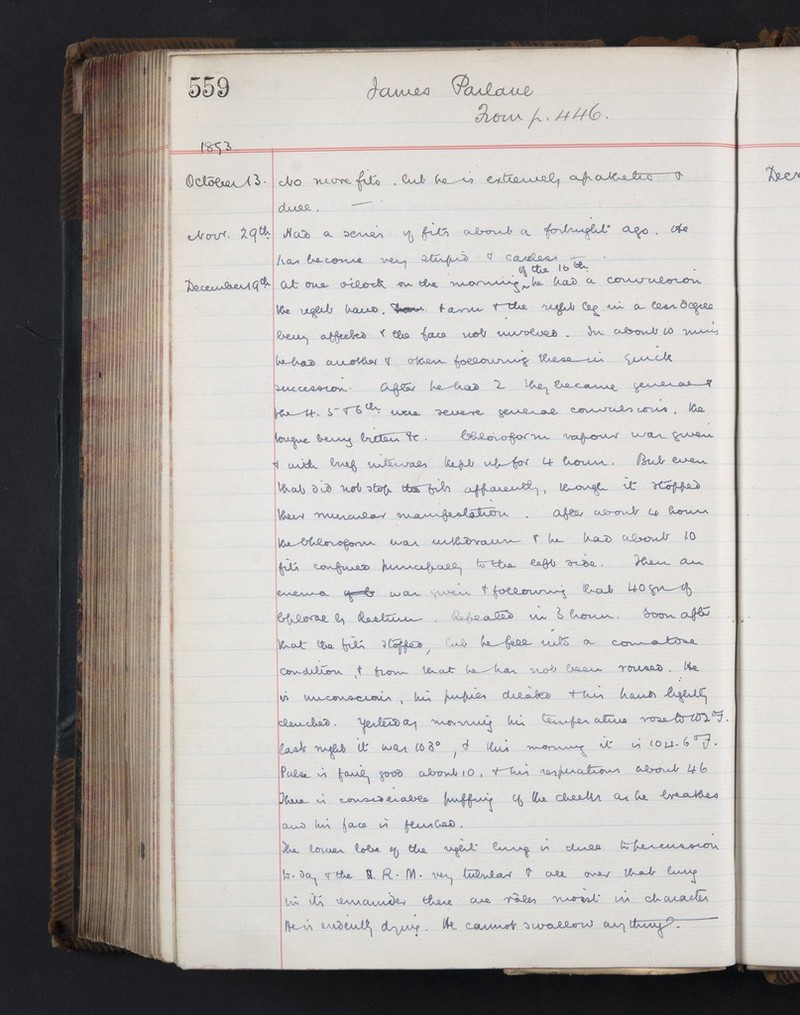 559
James Parlane
From p. 446.
1893
October 13. No more fits. but he is extremely apathetic &
dull. —
Novr. 29th Had a series of fits about a fortnight ago. He
has become very stupid & careless —.
of the 16th
December 19th At one o'clock on the morning he had a convulsion
the right hand. & arm & the right leg in a less degree
being affected & the face not involved. In about 10 mins
he had another & others following these in quick
succession. After he had 2 they became general &
the 4. 5 & 6th were severe general convulsions, the
tongue being bitten &c. Chloroform vapour was given
& with brief intervals kept up for 4 hours. But even
that did not stop the fits apparently, though it stopped
their muscular manifestation. After about 4 hours
the Chloroform was withdrawn & he had about 10
fits confined principally to the left side. Then an
enema was given & following that 40 gr of
Chloral by Rectum. Repeated in 3 hours. Soon after
that the fits stopped, but he fell into a comatose
condition, & from that he has not been roused. He
is unconscious, his pupils dilated & his hands lightly
clenched. Yesterday morning his temperature rose to 102°F.
last night it was 103°, & this morning it is 104.6°F.
Pulse is fairly good about 10, & his respirations about 46
There is considerable puffing of the cheeks as he breathes
and his face is flushed.
The lower lobe of the right lung is dull to percussion
to-day & the R. M. very tubular & all over that lung
in its remainder there are râles moist in character
He is evidently dying. He cannot swallow anything.
Decr